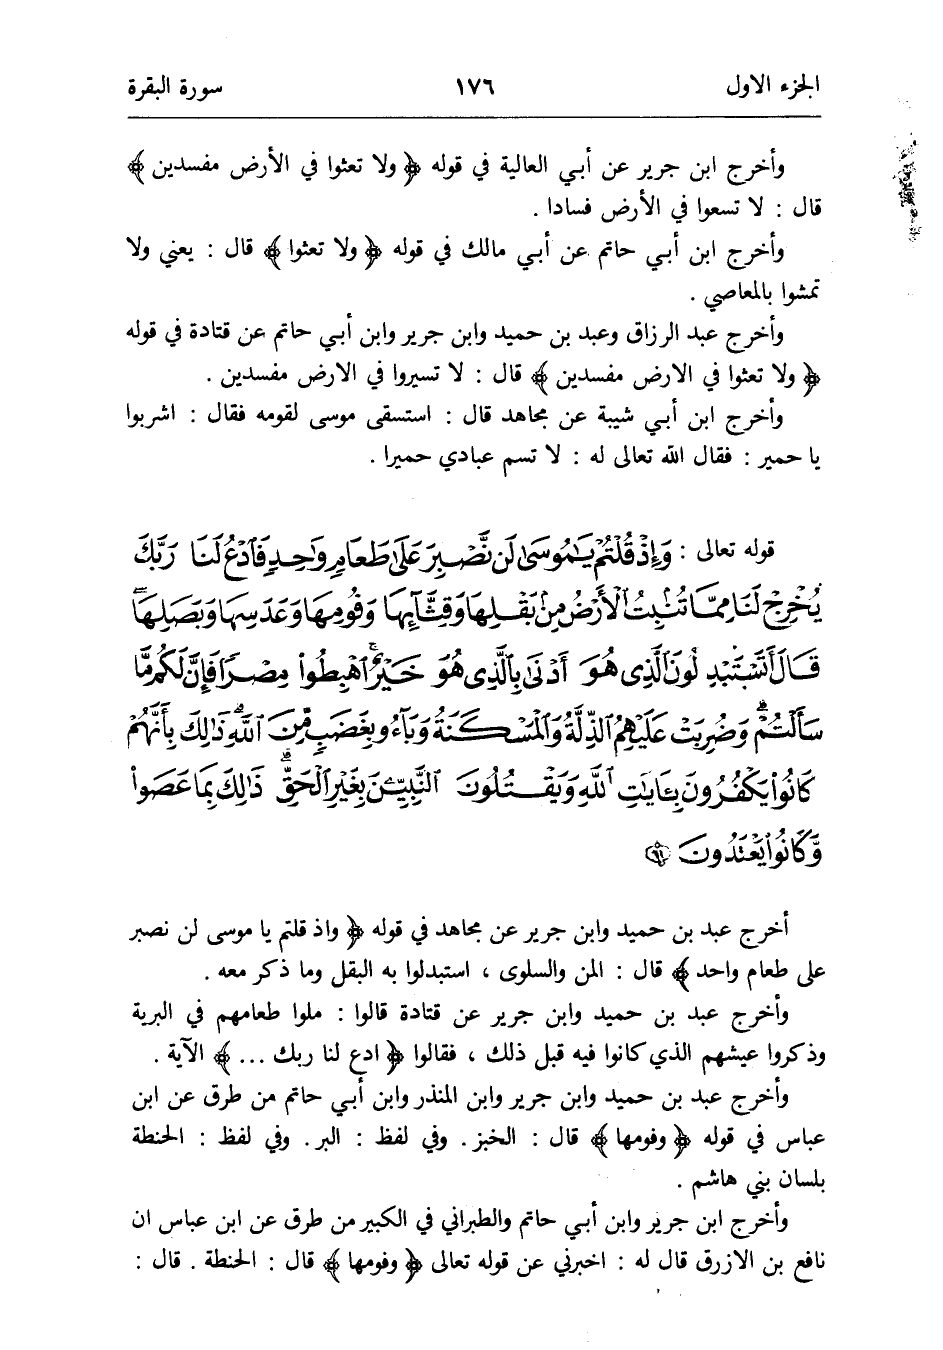 الجزء الاول ١٧٦ سورة البقرة
وأخرج ابن جرير عن أبي العالية في قوله ﴿ ولا تعثوا في الأرض مفسدين ﴾
قال : لا تسعوا في الأرض فسادا .
وأخرج ابن أبي حاتم عن أبي مالك في قوله ﴿ ولا تعثوا ﴾ قال : يعني ولا
تمشوا بالمعاصي .
وأخرج عبد الرزاق وعبد بن حميد وابن جرير وابن أبي حاتم عن قتادة في قوله
﴿ ولا تعثوا في الارض مفسدين ﴾ قال : لا تسيروا في الارض مفسدين .
وأخرج ابن أبي شيبة عن مجاهد قال : استسقى موسى لقومه فقال : اشربوا
يا حمير : فقال الله تعالى له : لا تسم عبادي حميرا .
قوله تعالى : وَإِذْ قُلْتُمْ يَٰمُوسَىٰ لَن نَّصْبِرَ عَلَىٰ طَعَامٍ وَٰحِدٍ فَٱدْعُ لَنَا رَبَّكَ
يُخْرِجْ لَنَا مِمَّا تُنۢبِتُ ٱلْأَرْضُ مِنۢ بَقْلِهَا وَقِثَّآئِهَا وَفُومِهَا وَعَدَسِهَا وَبَصَلِهَا
قَالَ أَتَسْتَبْدِلُونَ ٱلَّذِى هُوَ أَدْنَىٰ بِٱلَّذِى هُوَ خَيْرٌ ٱهْبِطُوا۟ مِصْرًا فَإِنَّ لَكُم مَّا
سَأَلْتُمْ وَضُرِبَتْ عَلَيْهِمُ ٱلذِّلَّةُ وَٱلْمَسْكَنَةُ وَبَآءُو بِغَضَبٍ مِّنَ ٱللَّهِ ذَٰلِكَ بِأَنَّهُمْ
كَانُوا۟ يَكْفُرُونَ بِـَٔايَٰتِ ٱللَّهِ وَيَقْتُلُونَ ٱلنَّبِيِّۦنَ بِغَيْرِ ٱلْحَقِّ ذَٰلِكَ بِمَا عَصَوا۟
وَّكَانُوا۟ يَعْتَدُونَ ٦١
أخرج عبد بن حميد وابن جرير عن مجاهد في قوله ﴿ واذ قلتم يا موسى لن نصبر
على طعام واحد ﴾ قال : المن والسلوى ، استبدلوا به البقل وما ذكر معه .
وأخرج عبد بن حميد وابن جرير عن قتادة قالوا : ملوا طعامهم في البرية
وذكروا عيشهم الذي كانوا فيه قبل ذلك ، فقالوا ﴿ ادع لنا ربك ... ﴾ الآية .
وأخرج عبد بن حميد وابن جرير وابن المنذر وابن أبي حاتم من طرق عن ابن
عباس في قوله ﴿ وفومها ﴾ قال : الخبز . وفي لفظ : البر . وفي لفظ : الحنطة
بلسان بني هاشم .
وأخرج ابن جرير وابن أبي حاتم والطبراني في الكبير من طرق عن ابن عباس ان
نافع بن الازرق قال له : اخبرني عن قوله تعالى ﴿ وفومها ﴾ قال : الحنطة . قال :